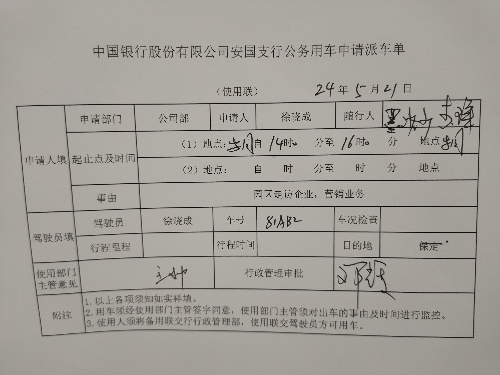 中国银行股份有限公司安国支行公务用车申请派车单
（使用联） 24年5月21日
申请人填 申请部门 公司部 申请人 徐晓成 随行人
起止点及时间 （1）地点： 自14时0分至16时0分 地点
（2）地点： 自 时 分至 时 分 地点
事由 园区走访企业，营销业务
驾驶员填 驾驶员 徐晓成 车号 81AB2 车况检查
行程里程 行程时间 目的地 保定
使用部门主管意见 行政管理审批
附注 1.以上各项须知如实祥填。
2.用车须经使用部门主管签字同意，使用部门主管须对出车的事由及时间进行监控。
3.使用人须将备用联交行政管理部，使用联交驾驶员方可用车。